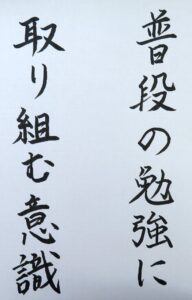 普段の勉強に
取り組む意識